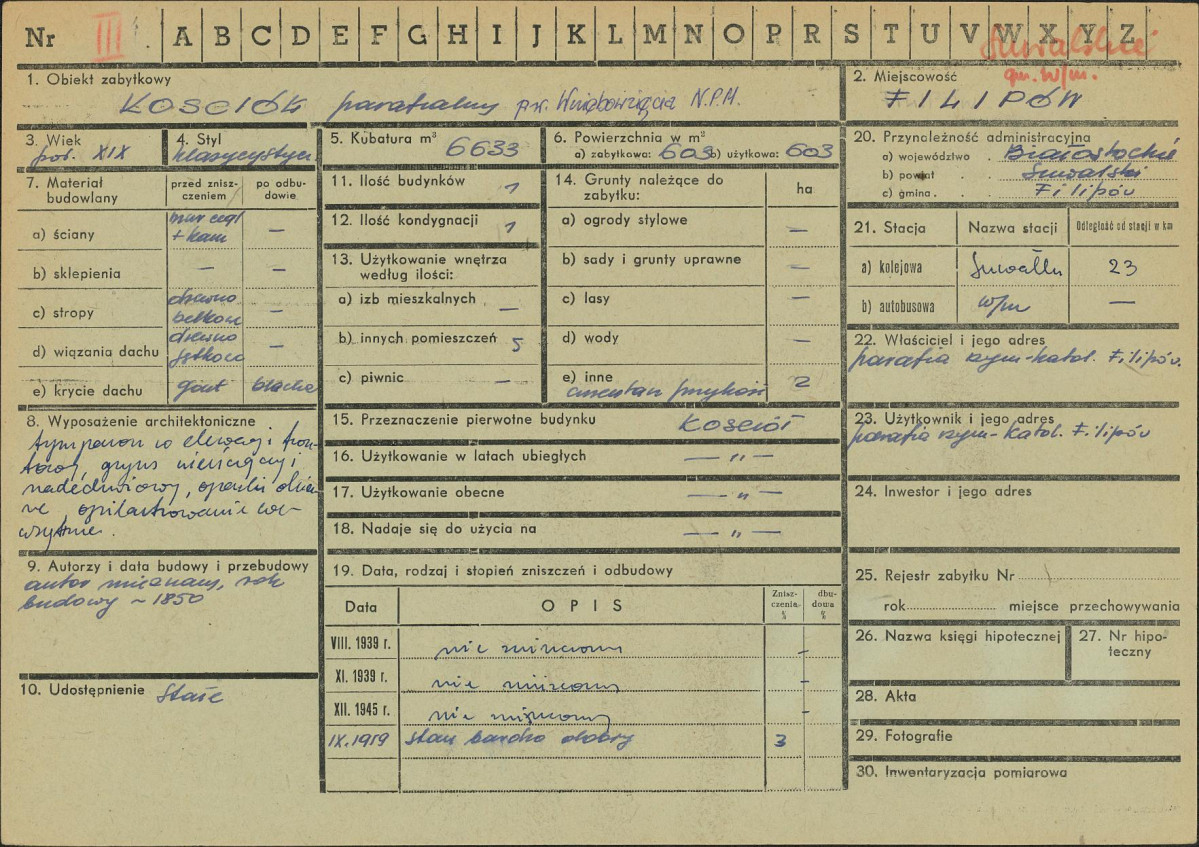 Nr III A B C D E F G H I J K L M N O P R S T U V W X Y Z
Suwalski
gm. w/m.
1. Obiekt zabytkowy
KOSCIÓŁ parafialny p.w. Wniebowzięcia N.P.M.
2. Miejscowość
FILIPÓW
3. Wiek
poł. XIX
4. Styl
klasycystycz
5. Kubatura m³ 6633
6. Powierzchnia w m²
a) zabytkowa: 603 b) użytkowa: 603
7. Materiał budowlany
przed zniszczeniem
po odbudowie
a) ściany
mur cegl
+ kam —
b) sklepienia — —
c) stropy
drewno
belkow —
d) wiązania dachu
drewno
—
e) krycie dachu gont blacha
8. Wyposażenie architektoniczne
tympanon w elewacji fron-
towej, gzyms wieńczący i
naddrzwiowy, opaski okien
ne, opilastrowanie we-
wnętrzne.
9. Autorzy i data budowy i przebudowy
autor nieznany, rok
budowy ~ 1850
10. Udostępnienie stałe
11. Ilość budynków 1
12. Ilość kondygnacji 1
13. Użytkowanie wnętrza
według ilości:
a) izb mieszkalnych —
b) innych pomieszczeń 5
c) piwnic —
14. Grunty należące do
zabytku:
ha
a) ogrody stylowe —
b) sady i grunty uprawne —
c) lasy —
d) wody —
e) inne
cmentarz przykość 2
15. Przeznaczenie pierwotne budynku KOSCIÓŁ
16. Użytkowanie w latach ubiegłych — „ —
17. Użytkowanie obecne — „ —
18. Nadaje się do użycia na — „ —
19. Data, rodzaj i stopień zniszczeń i odbudowy
Data OPIS Znisz-
czenia % dbu-
dowa %
VIII. 1939 r. nie zniszczony —
XI. 1939 r. nie zniszczony —
XII. 1945 r. nie zniszczony —
IX. 1959 stan bardzo dobry 3
20. Przynależność administracyjna
a) województwo . Białostockie
b) powiat . Suwalski
c) gmina . Filipów
21. Stacja Nazwa stacji Odległość od stacji w km
a) kolejowa Suwałki 23
b) autobusowa w/m —
22. Właściciel i jego adres
parafia rzym-katol. Filipów.
23. Użytkownik i jego adres
parafia rzym-katol. Filipów
24. Inwestor i jego adres
25. Rejestr zabytku Nr
rok miejsce przechowywania
26. Nazwa księgi hipotecznej
27. Nr hipo-
teczny
28. Akta
29. Fotografie
30. Inwentaryzacja pomiarowa